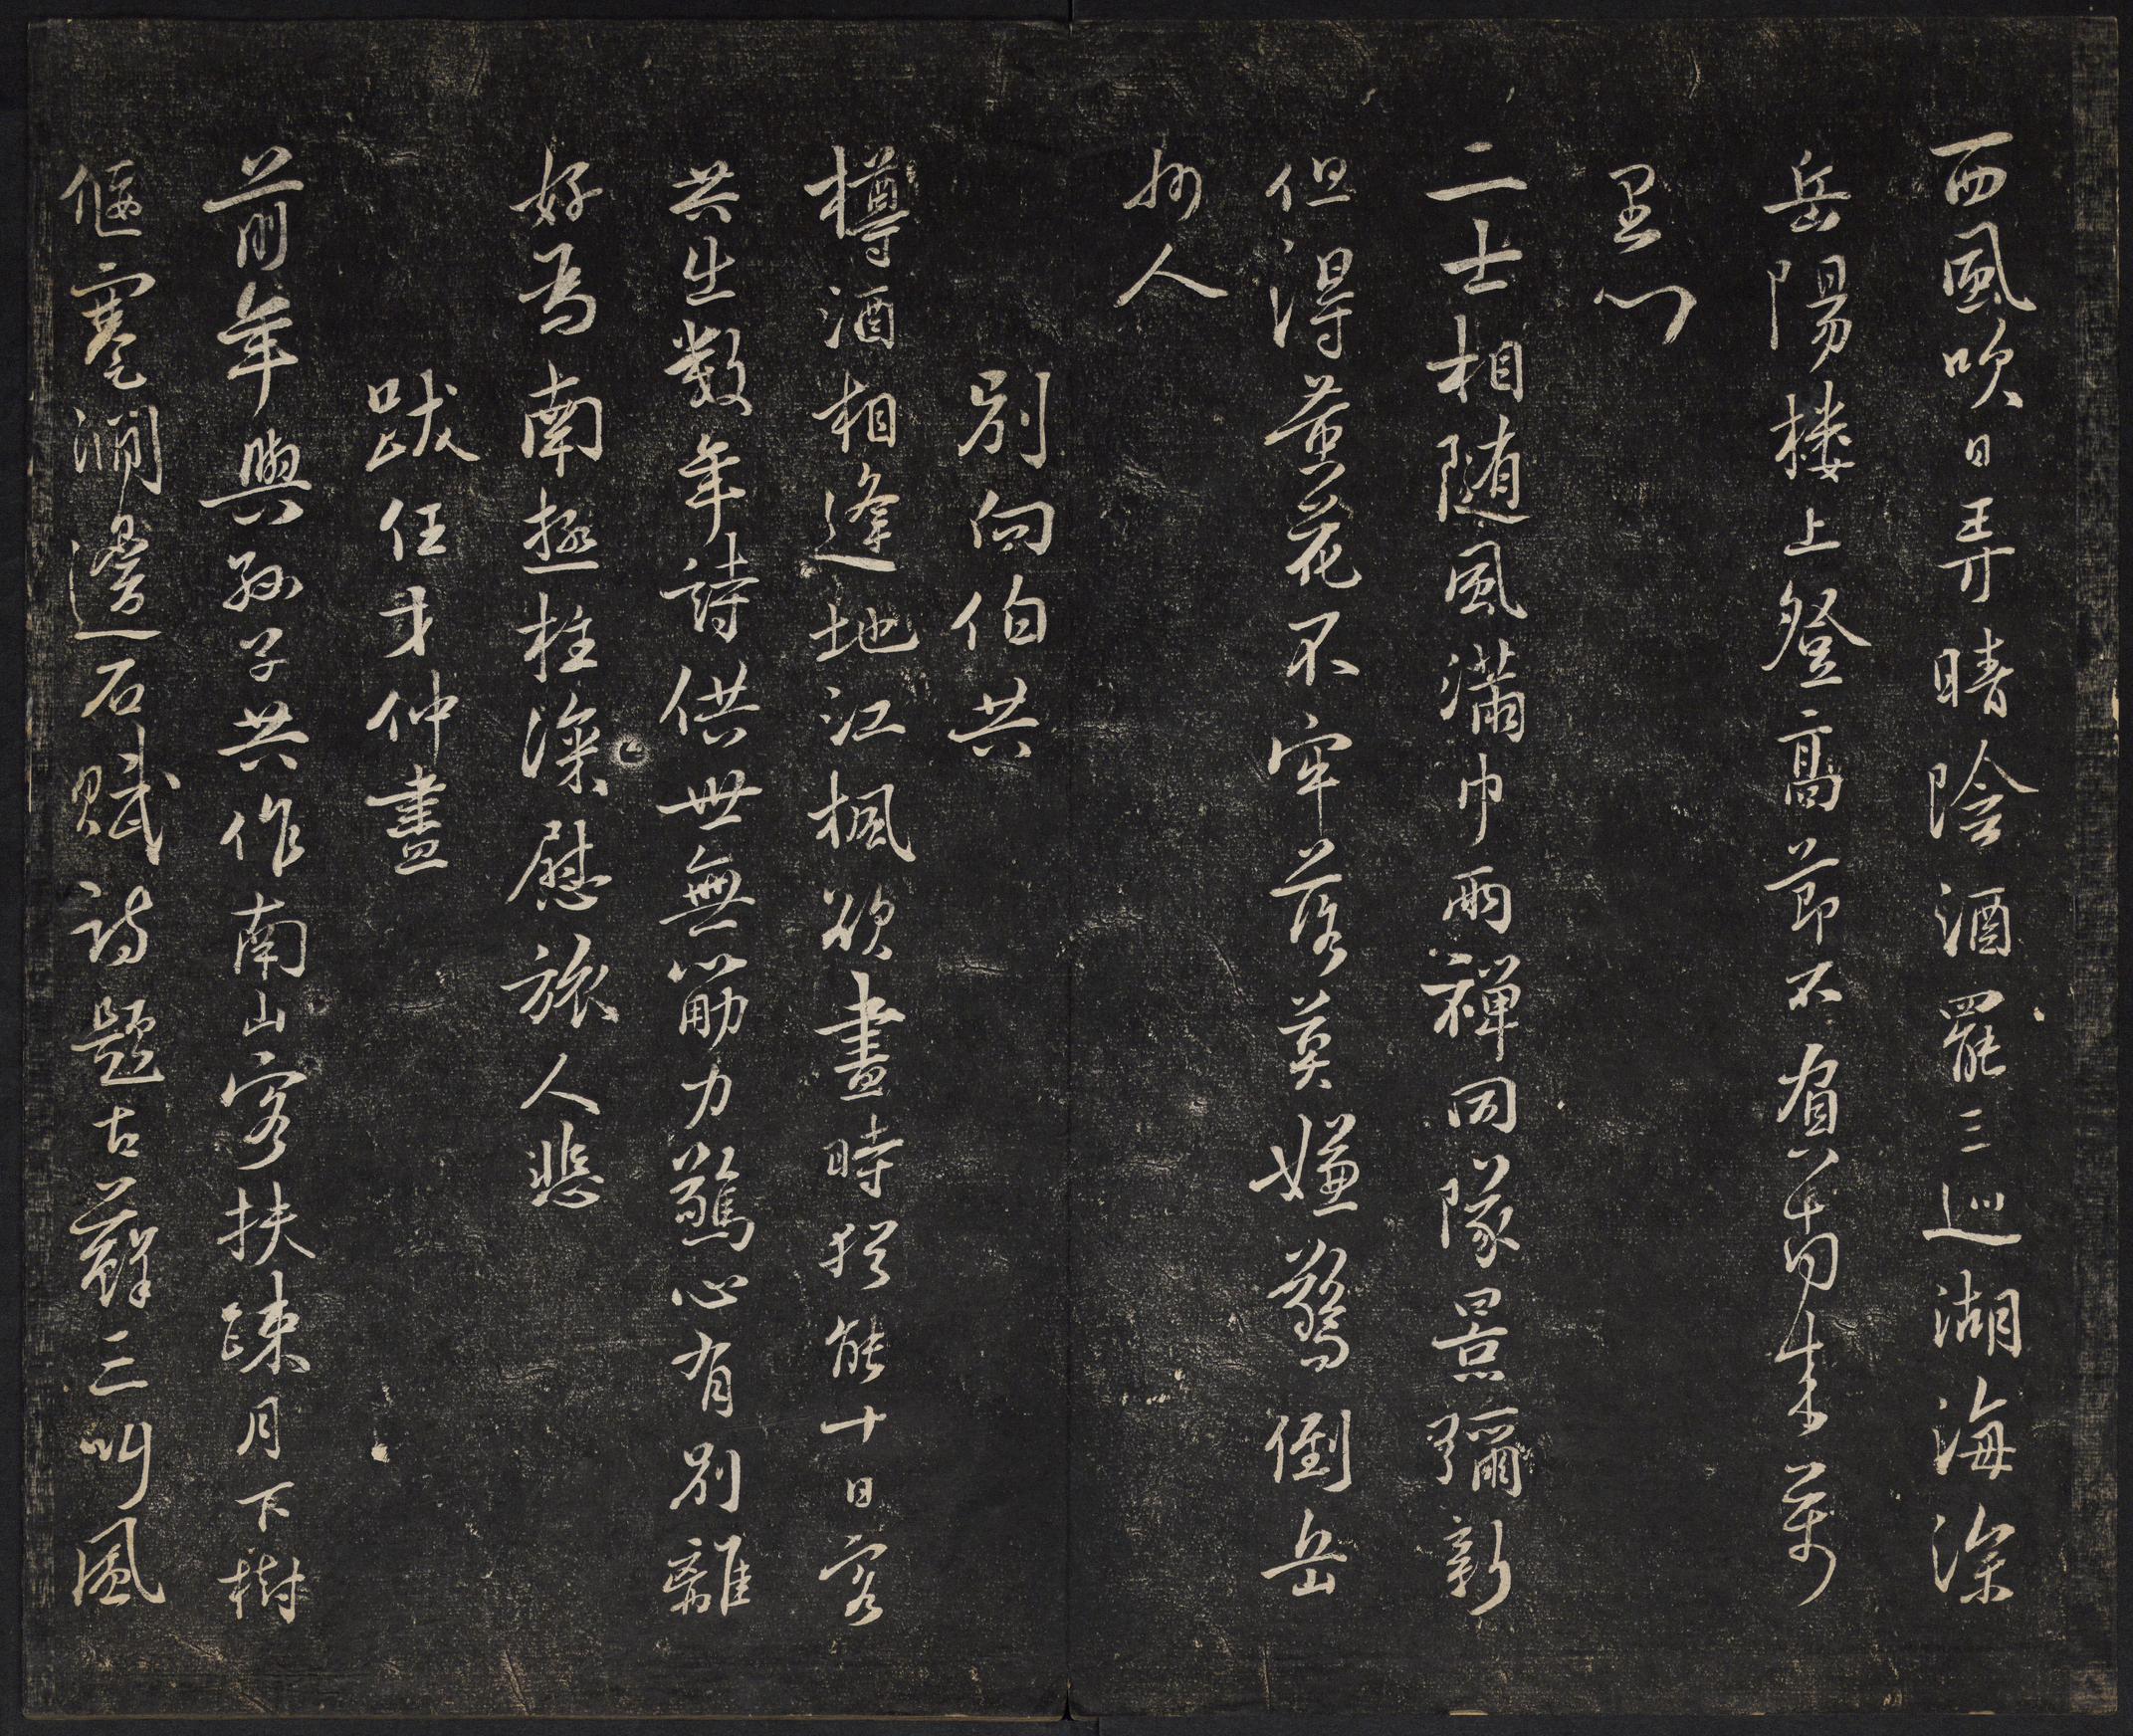 西風吹日弄晴陰酒罷三巡湖海深
岳陽樓上登高節不負千南朱萬
里心
二士相随風滿巾兩禅同隊景彌新
但得黄花不牢落莫嫌驚倒岳
州人
別向伯共
樽酒相逢地江楓欲盡時猶能十日客
共出數年詩供世無筋力驚心有別離
好為南極柱深慰旅人悲
跋任才仲畫
前年與孫子共作南山客扶疎月下樹
偃蹇澗邊石賦詩題古蘚三叫風